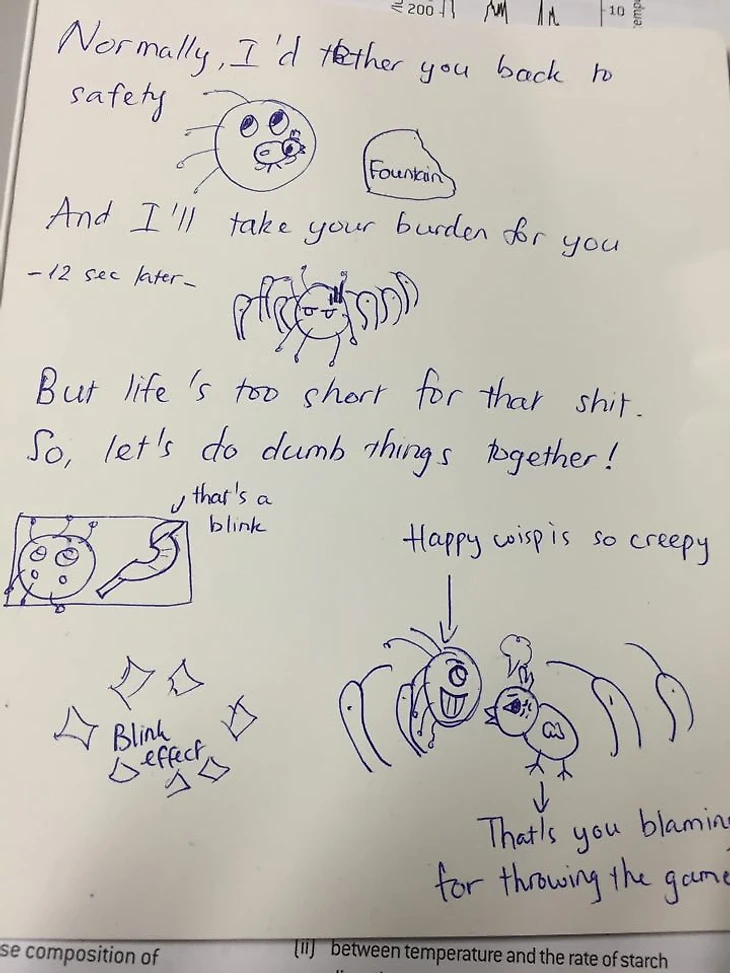 200
10
Normally, I'd tether you back to
safety
Fountain
And I'll take your burden for you
-12 sec later-
But life's too short for that shit.
So, let's do dumb things together!
that's a
blink
Happy wisp is so creepy
Blink
effect
That's you blamin
for throwing the game
se composition of
(ii) between temperature and the rate of starch